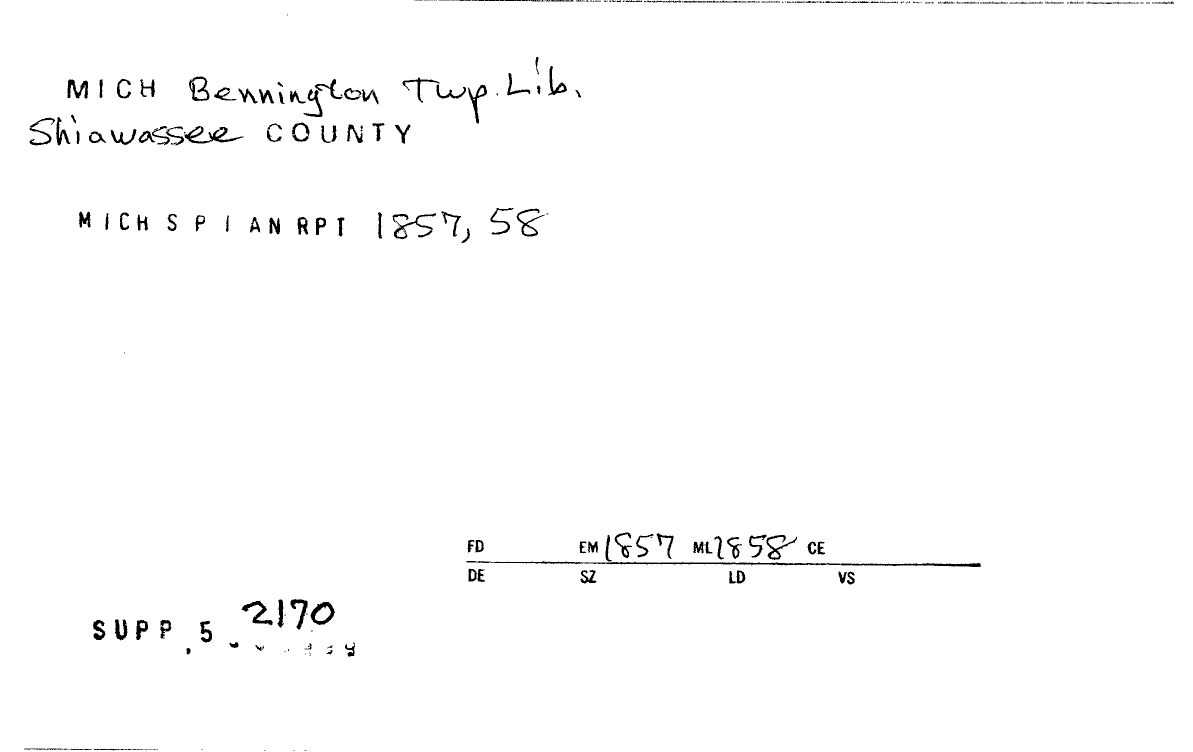 MICH Bennington Twp. Lib.
Shiawassee COUNTY
MICH SPI AN RPT 1857, 58
FD EM 1857 ML 1858 CE
DE SZ LD VS
2170
SUPP, 5